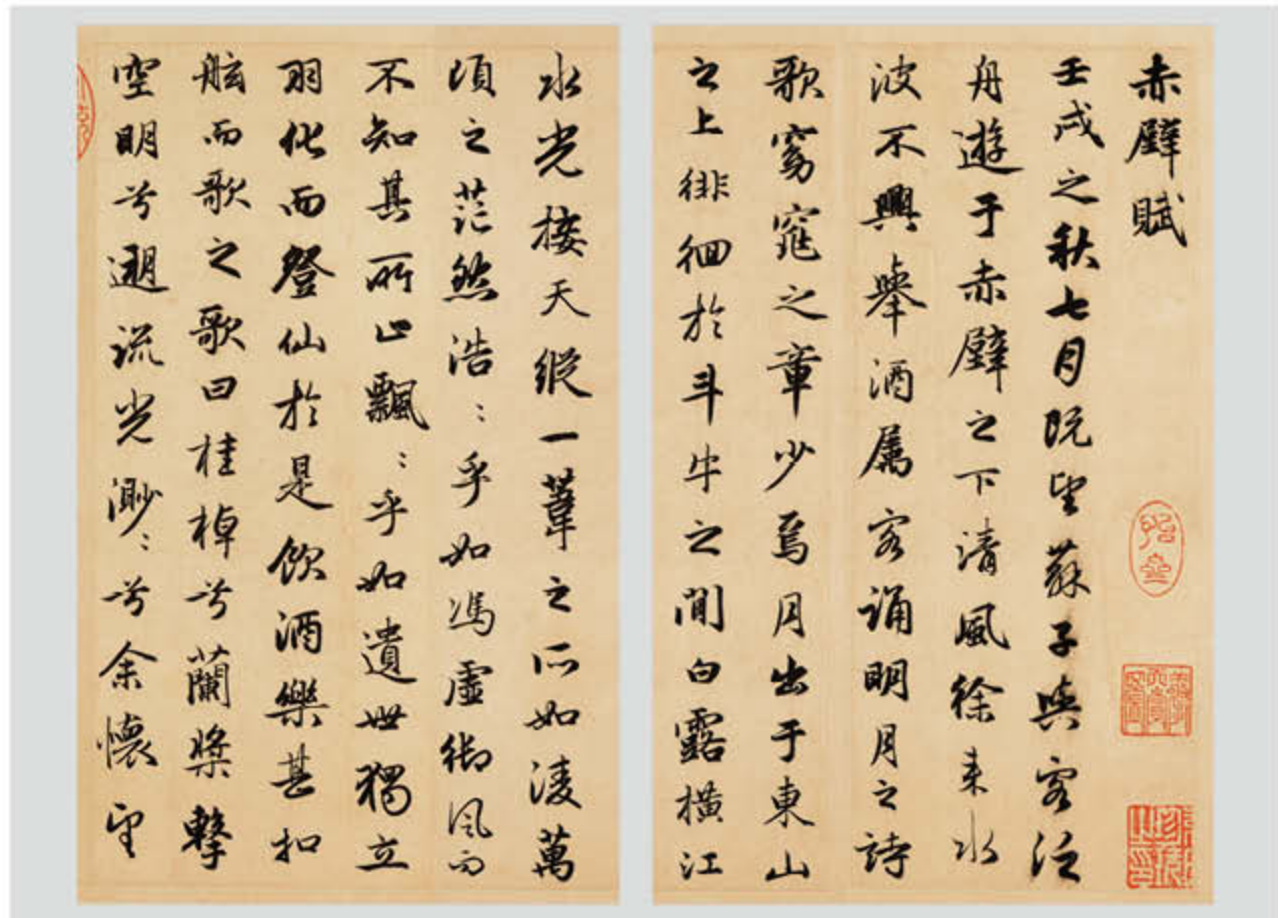 赤壁賦
壬戌之秋七月既望蘇子與客泛
舟遊于赤壁之下清風徐来水
波不興舉酒属客誦明月之詩
歌窈窕之章少焉月出于東山
之上徘徊於斗牛之間白露橫江
水光接天縱一葦之所如淩萬
頃之茫然浩〻乎如馮虛御風而
不知其所止飄〻乎如遺世獨立
羽化而登仙於是飲酒樂甚扣
舷而歌之歌曰桂棹兮蘭槳擊
空明兮遡流光渺〻兮余懷望